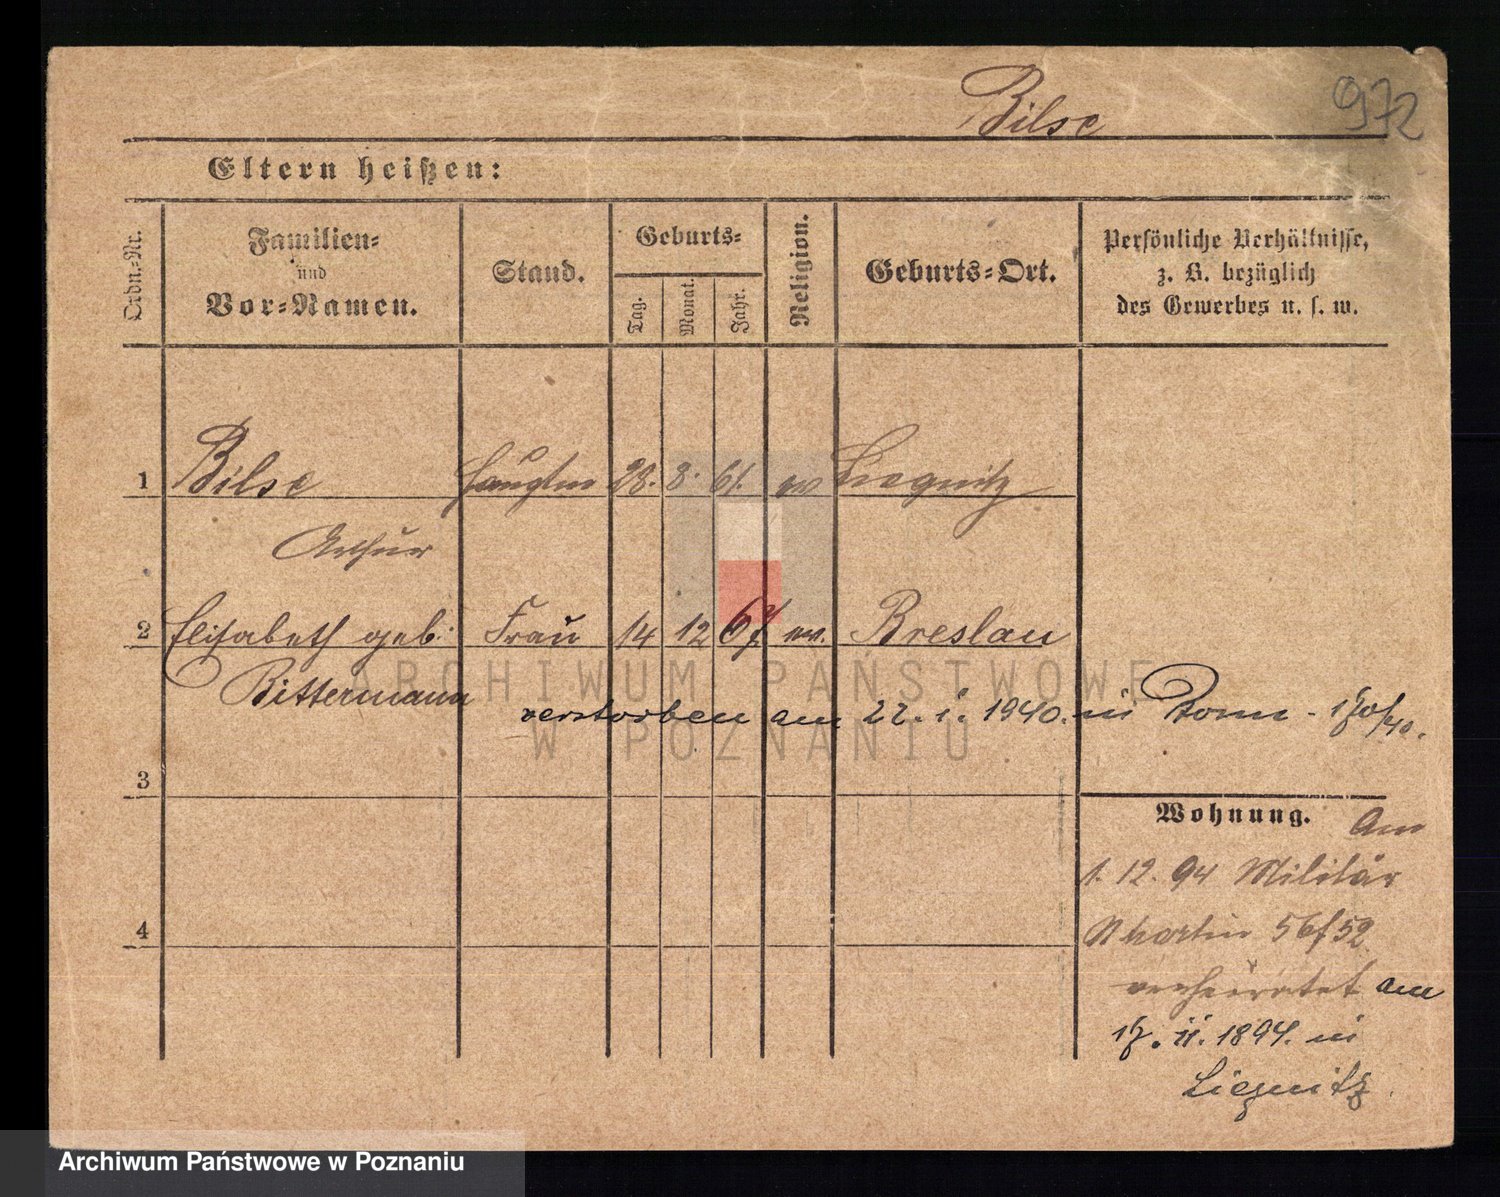 972
Bilse
Eltern heißen:
Ordn.-Nr.
Familien-
und
Vor-Namen.
Stand.
Geburts-
Tag.
Monat.
Jahr.
Religion.
Geburts-Ort.
Persönliche Verhältnisse,
z. B. bezüglich
des Gewerbes u. s. w.
1 Bilse Hauptm 28. 8. 61. ev Liegnitz
Arthur
2 Elisabeth geb: Frau 14 12 67 ev. Breslau
Bittermann
verstorben am 22. i. 1940. in Bonn -
3
4
Wohnung.
Am
1. 12. 94 Militär
Martin 56/52
verheiratet am
17. ii. 1894. in
Liegnitz.
ARCHIWUM PAŃSTWOWE
W POZNANIU
Archiwum Państwowe w Poznaniu